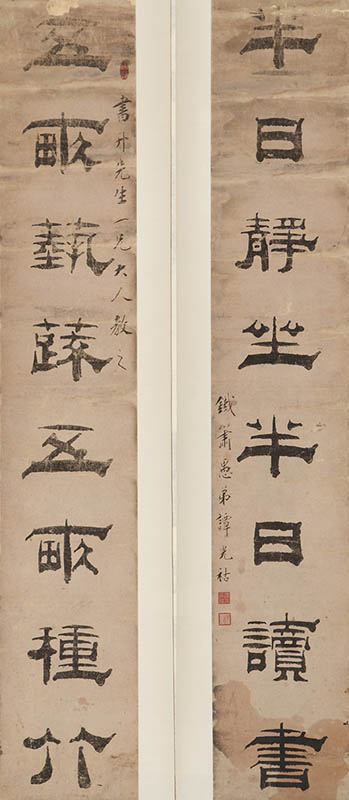 半日靜坐半日讀書
鐵簫愚弟譚光祜
五畝蓺蔬五畝種竹
書升先生一兄大人教之